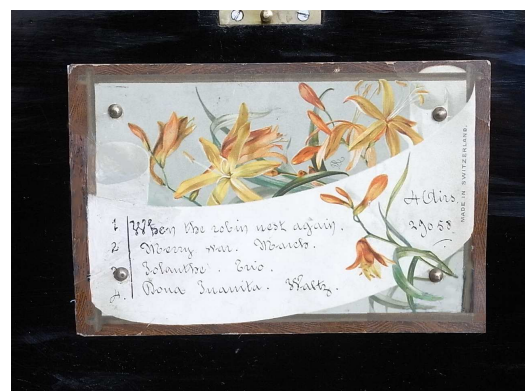 4 Airs.
MADE IN SWITZERLAND.
29058
1 When the robin nest again.
2 Merry war. March.
3 Iolanthe. Trio.
4. Dona Juanita. Waltz.